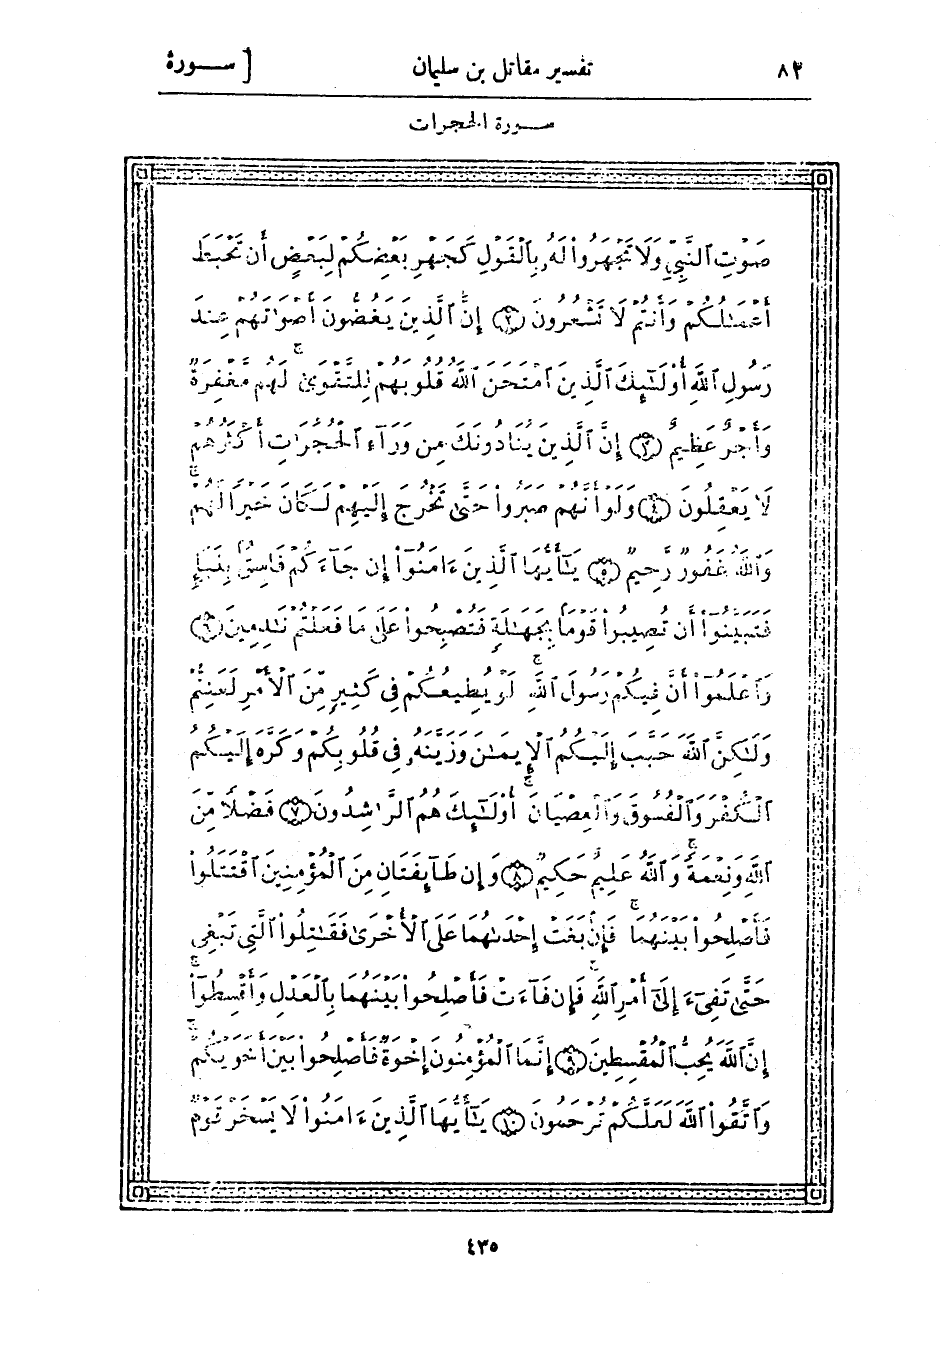 ٨٢ تفسير مقاتل بن سليمان [ ســورة
ســورة الحجرات
صَوْتِ ٱلنَّبِىِّ وَلَا تَجْهَرُوا۟ لَهُۥ بِٱلْقَوْلِ كَجَهْرِ بَعْضِكُمْ لِبَعْضٍ أَن تَحْبَطَ
أَعْمَـٰلُكُمْ وَأَنتُمْ لَا تَشْعُرُونَ ﴿٢﴾ إِنَّ ٱلَّذِينَ يَغُضُّونَ أَصْوَٰتَهُمْ عِندَ
رَسُولِ ٱللَّهِ أُو۟لَـٰٓئِكَ ٱلَّذِينَ ٱمْتَحَنَ ٱللَّهُ قُلُوبَهُمْ لِلتَّقْوَىٰ ۚ لَهُم مَّغْفِرَةٌ
وَأَجْرٌ عَظِيمٌ ﴿٣﴾ إِنَّ ٱلَّذِينَ يُنَادُونَكَ مِن وَرَآءِ ٱلْحُجُرَٰتِ أَكْثَرُهُمْ
لَا يَعْقِلُونَ ﴿٤﴾ وَلَوْ أَنَّهُمْ صَبَرُوا۟ حَتَّىٰ تَخْرُجَ إِلَيْهِمْ لَكَانَ خَيْرًا لَّهُمْ ۚ
وَٱللَّهُ غَفُورٌ رَّحِيمٌ ﴿٥﴾ يَـٰٓأَيُّهَا ٱلَّذِينَ ءَامَنُوٓا۟ إِن جَآءَكُمْ فَاسِقٌۢ بِنَبَإٍ
فَتَبَيَّنُوٓا۟ أَن تُصِيبُوا۟ قَوْمًۢا بِجَهَـٰلَةٍ فَتُصْبِحُوا۟ عَلَىٰ مَا فَعَلْتُمْ نَـٰدِمِينَ ﴿٦﴾
وَٱعْلَمُوٓا۟ أَنَّ فِيكُمْ رَسُولَ ٱللَّهِ ۚ لَوْ يُطِيعُكُمْ فِى كَثِيرٍ مِّنَ ٱلْأَمْرِ لَعَنِتُّمْ
وَلَـٰكِنَّ ٱللَّهَ حَبَّبَ إِلَيْكُمُ ٱلْإِيمَـٰنَ وَزَيَّنَهُۥ فِى قُلُوبِكُمْ وَكَرَّهَ إِلَيْكُمُ
ٱلْكُفْرَ وَٱلْفُسُوقَ وَٱلْعِصْيَانَ ۚ أُو۟لَـٰٓئِكَ هُمُ ٱلرَّٰشِدُونَ ﴿٧﴾ فَضْلًا مِّنَ
ٱللَّهِ وَنِعْمَةً ۚ وَٱللَّهُ عَلِيمٌ حَكِيمٌ ﴿٨﴾ وَإِن طَآئِفَتَانِ مِنَ ٱلْمُؤْمِنِينَ ٱقْتَتَلُوا۟
فَأَصْلِحُوا۟ بَيْنَهُمَا ۖ فَإِنۢ بَغَتْ إِحْدَىٰهُمَا عَلَى ٱلْأُخْرَىٰ فَقَـٰتِلُوا۟ ٱلَّتِى تَبْغِى
حَتَّىٰ تَفِىٓءَ إِلَىٰٓ أَمْرِ ٱللَّهِ ۚ فَإِن فَآءَتْ فَأَصْلِحُوا۟ بَيْنَهُمَا بِٱلْعَدْلِ وَأَقْسِطُوٓا۟ ۖ
إِنَّ ٱللَّهَ يُحِبُّ ٱلْمُقْسِطِينَ ﴿٩﴾ إِنَّمَا ٱلْمُؤْمِنُونَ إِخْوَةٌ فَأَصْلِحُوا۟ بَيْنَ أَخَوَيْكُمْ ۚ
وَٱتَّقُوا۟ ٱللَّهَ لَعَلَّكُمْ تُرْحَمُونَ ﴿١٠﴾ يَـٰٓأَيُّهَا ٱلَّذِينَ ءَامَنُوا۟ لَا يَسْخَرْ قَوْمٌ
٤٣٥